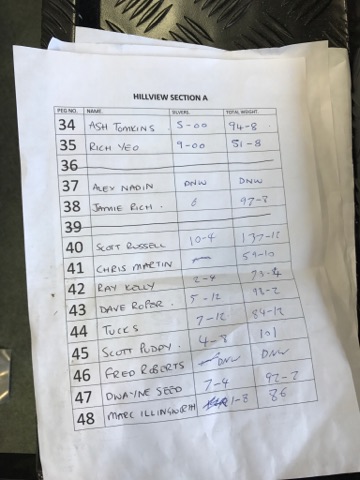 HILLVIEW SECTION A
PEG NO. NAME. SILVERS. TOTAL WEIGHT.
34 ASH TOMKINS 5-00 94-8
35 RICH YEO 9-00 51-8
36
37 ALEX NADIN DNW DNW
38 JAMIE RICH. 6 97-8
39
40 SCOTT RUSSELL 10-4 137-12
41 CHRIS MARTIN — 59-10
42 RAY KELLY 2-4 73-4
43 DAVE ROPER. 5-12 98-2
44 TUCKS 7-12 84-12
45 SCOTT PUDDY. 4-8 101
46 FRED ROBERTS DNW DNW
47 DWAYNE SEED 7-4 92-2
48 MARC ILLINGWORTH 1-8 86